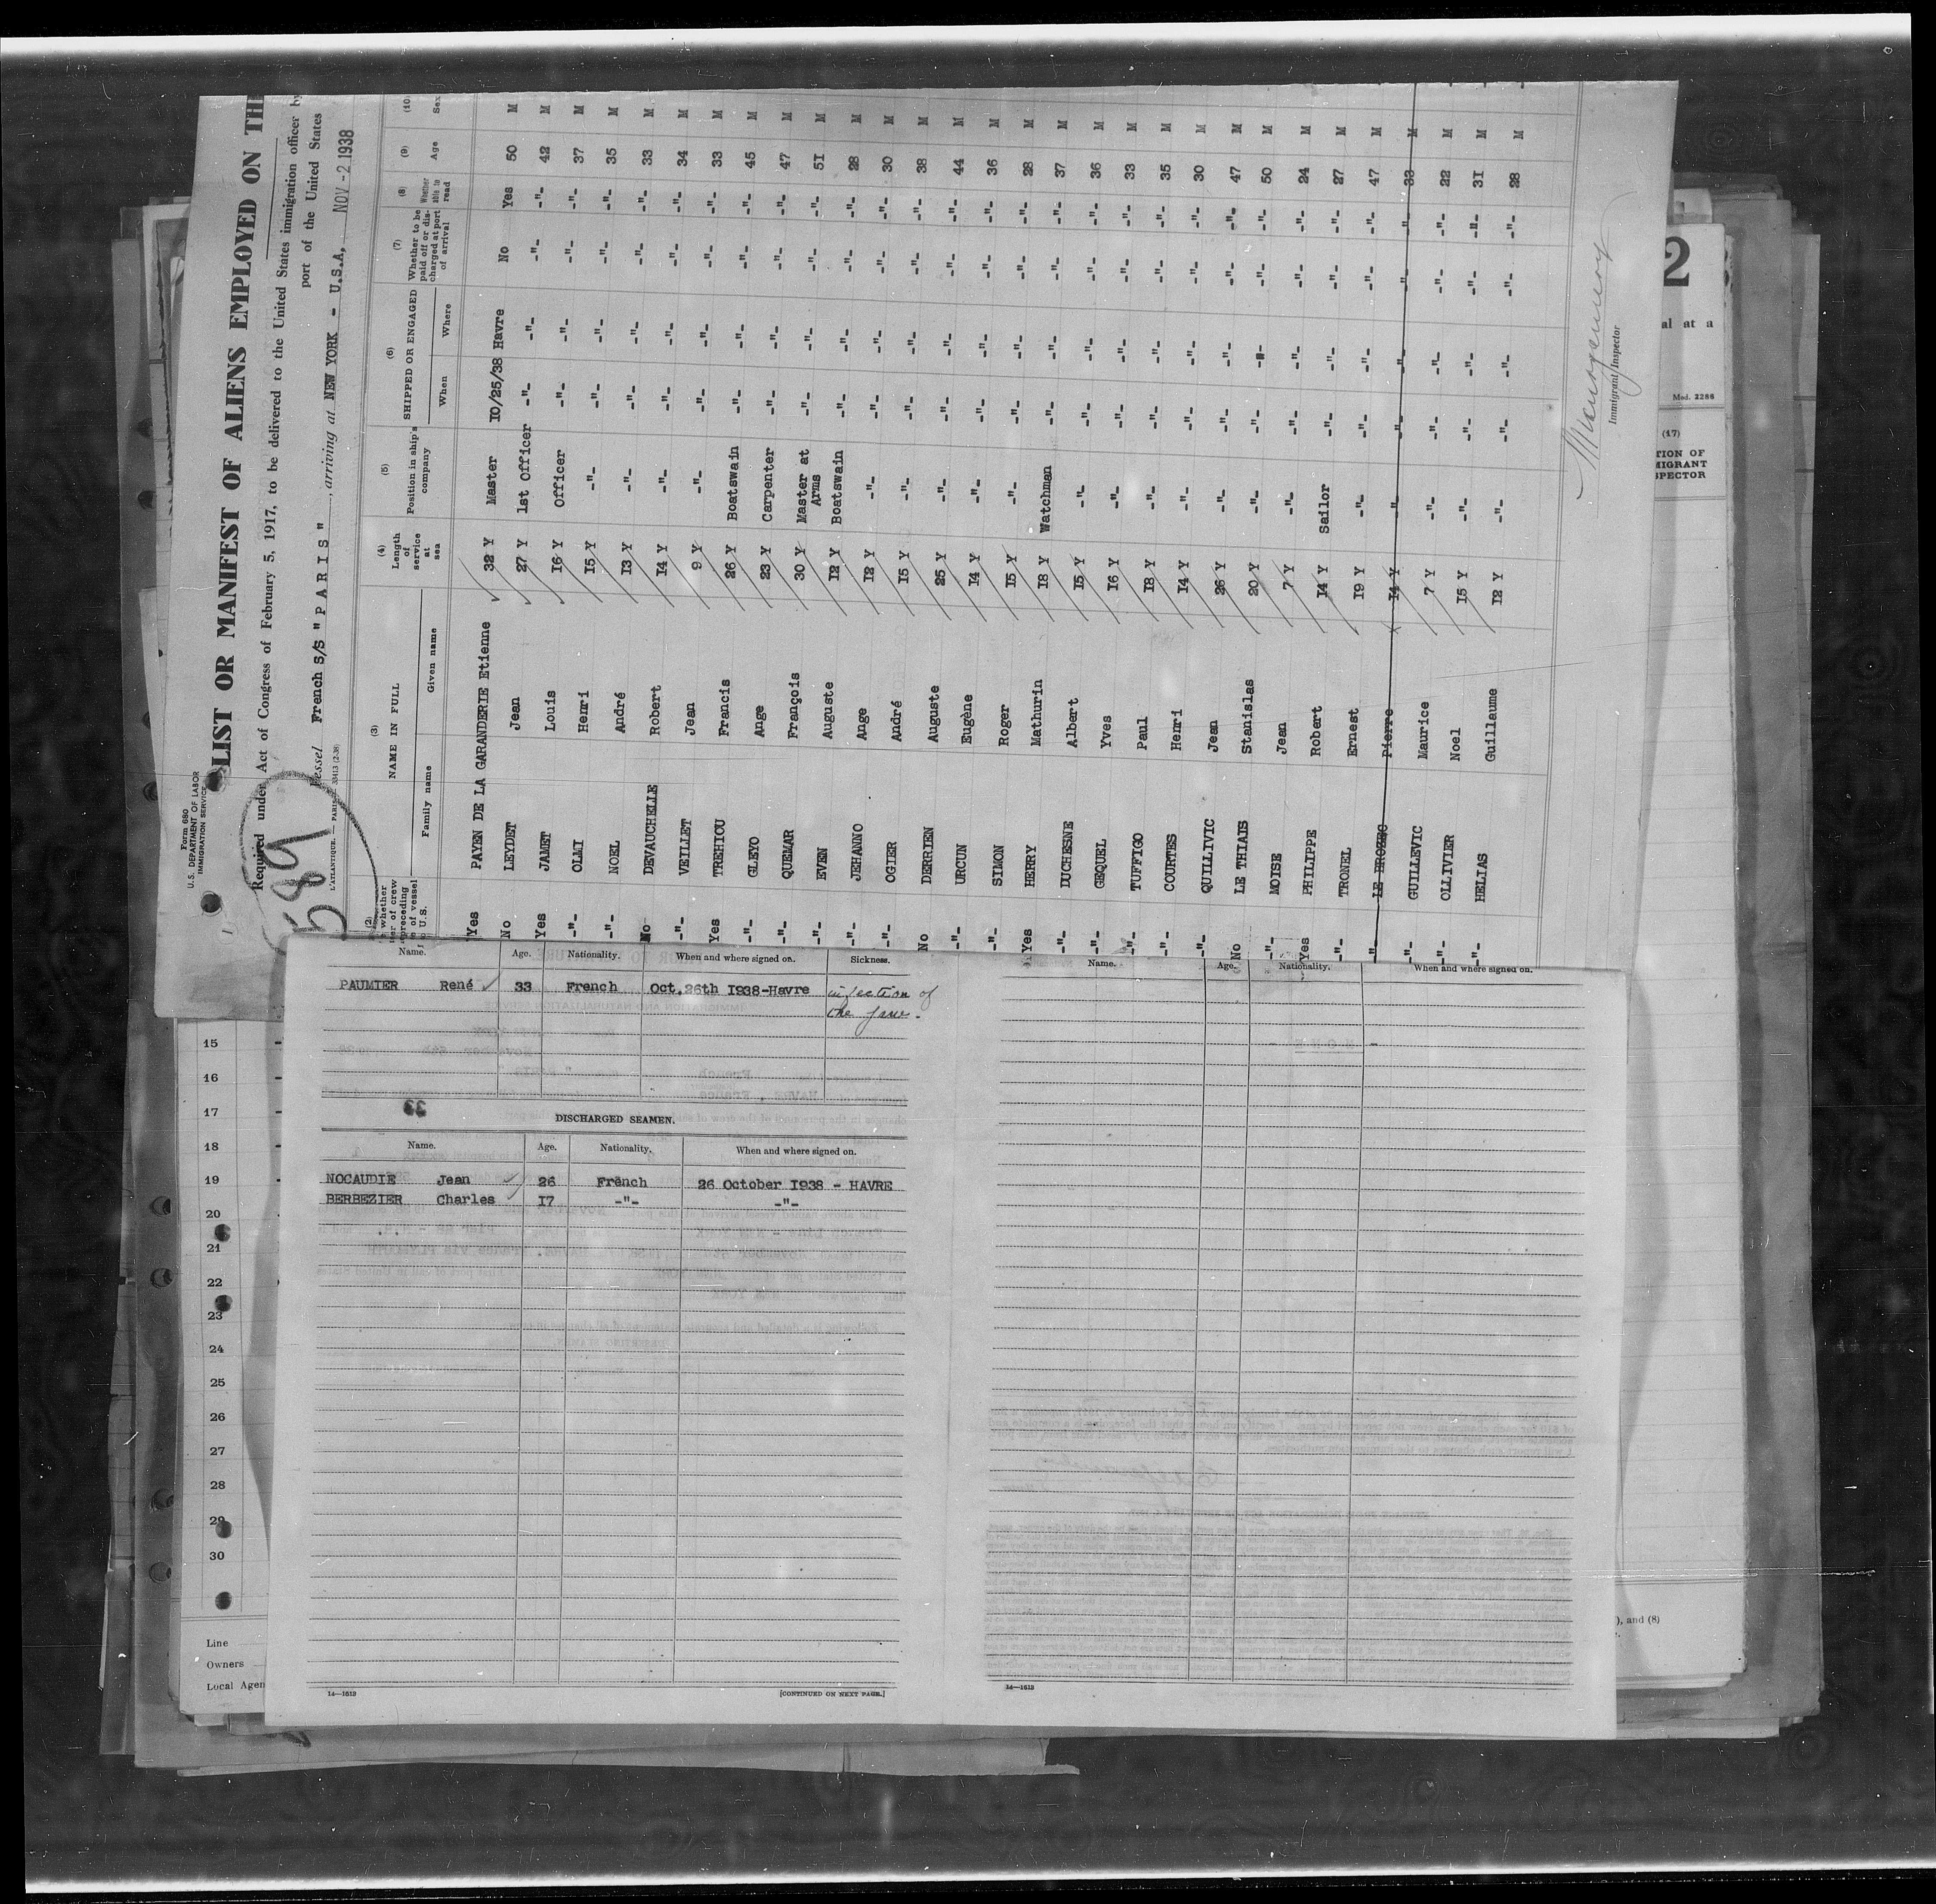 Form 680
U.S. DEPARTMENT OF LABOR
IMMIGRATION SERVICE
LIST OR MANIFEST OF ALIENS EMPLOYED ON THE
Required under Act of Congress of February 5, 1917, to be delivered to the United States immigration officer by
port of the United States
Vessel French S/S "PARIS", arriving at NEW YORK - U.S.A, NOV -2 1938
589
L'ATLANTIQUE. — PARIS. 33413 (2-38)
(3) (4) (5) (6) (7) (8) (9) (10)
NAME IN FULL Length of service at sea Position in ship's company SHIPPED OR ENGAGED Whether to be paid off or discharged at port of arrival Whether able to read Age Sex
Family name Given name When Where
Yes PAYEN DE LA GARANDERIE Etienne 32 Y Master 10/25/38 Havre No Yes 50 M
No LEYDET Jean 27 Y 1st Officer -"- -"- -"- -"- 42 M
Yes JAMET Louis 16 Y Officer -"- -"- -"- -"- 37 M
-"- OLMI Henri 15 Y -"- -"- -"- -"- -"- 35 M
-"- NOEL André 13 Y -"- -"- -"- -"- -"- 33 M
No DEVAUCHELLE Robert 14 Y -"- -"- -"- -"- -"- 34 M
-"- VEILLET Jean 9 Y -"- -"- -"- -"- -"- 33 M
Yes TREHIOU Francis 26 Y Boatswain -"- -"- -"- -"- 45 M
-"- GLEYO Ange 23 Y Carpenter -"- -"- -"- -"- 47 M
-"- QUEMAR François 30 Y Master at Arms -"- -"- -"- -"- 51 M
-"- EVEN Auguste 12 Y Boatswain -"- -"- -"- -"- 28 M
-"- JEHANNO Ange 12 Y -"- -"- -"- -"- -"- 30 M
-"- OGIER André 15 Y -"- -"- -"- -"- -"- 38 M
No DERRIEN Auguste 25 Y -"- -"- -"- -"- -"- 44 M
-"- URCUN Eugène 14 Y -"- -"- -"- -"- -"- 36 M
-"- SIMON Roger 15 Y -"- -"- -"- -"- -"- 28 M
Yes HERRY Mathurin 18 Y Watchman -"- -"- -"- -"- 37 M
-"- DUCHESNE Albert 15 Y -"- -"- -"- -"- -"- 36 M
-"- GEQUEL Yves 16 Y -"- -"- -"- -"- -"- 33 M
-"- TUFFIGO Paul 18 Y -"- -"- -"- -"- -"- 35 M
-"- COURTES Henri 14 Y -"- -"- -"- -"- -"- 30 M
-"- QUILLIVIC Jean 26 Y -"- -"- -"- -"- -"- 47 M
No LE THIAIS Stanislas 20 Y -"- -"- -"- -"- -"- 50 M
-"- MOISE Jean 7 Y -"- -"- -"- -"- -"- 24 M
Yes PHILIPPE Robert 14 Y Sailor -"- -"- -"- -"- 27 M
-"- TRONEL Ernest 19 Y -"- -"- -"- -"- -"- 47 M
-"- Pierre 14 Y -"- -"- -"- -"- -"- 33 M
-"- GUILLEVIC Maurice 7 Y -"- -"- -"- -"- -"- 22 M
-"- OLLIVIER Noel 15 Y -"- -"- -"- -"- -"- 31 M
-"- HELIAS Guillaume 12 Y -"- -"- -"- -"- -"- 28 M
Immigrant Inspector
2
al at a
Mod. 2288
(17)
TION OF
MIGRANT
SPECTOR
Name. Age. Nationality. When and where signed on. Sickness.
PAUMIER René 33 French Oct. 26th 1938-Havre infection of
the jaw.
DISCHARGED SEAMEN.
Name. Age. Nationality. When and where signed on.
NOCAUDIE Jean 26 French 26 October 1938 - HAVRE
BERBEZIER Charles 17 -"- -"-
14—1613 [CONTINUED ON NEXT PAGE.]
Name. Age. Nationality. When and where signed on.
14—1613
15
16
17
18
19
20
21
22
23
24
25
26
27
28
29
30
Line
Owners
Local Agen
), and (8)